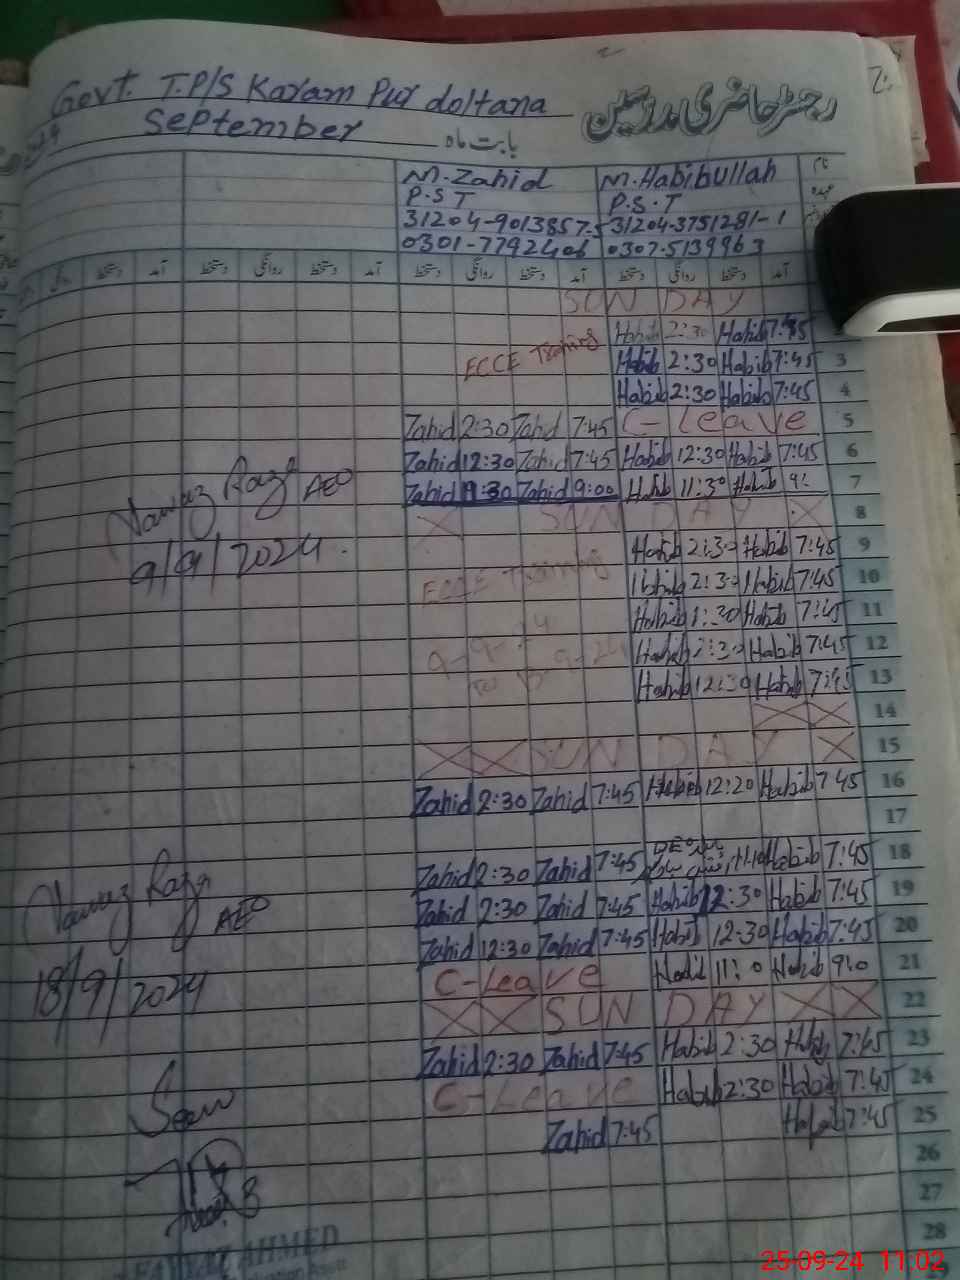 Govt. T.P/S Karam Pur doltana
رجسٹر حاضری مدرسین
September بابت ماہ
M. Zahid M. Habibullah نام
P.S.T P.S.T عہدہ
31204-9013857-5 31204-3751281-1
0301-7792406 0307-5139963
آمد دستخط روانگی دستخط آمد دستخط روانگی دستخط آمد
SUN DAY
ECCE Training Habib 2:30 Habib 7:45
Habib 2:30 Habib 7:45 3
Habib 2:30 Habib 7:45 4
Zahid 2:30 Zahid 7:45 C-Leave 5
Zahid 12:30 Zahid 7:45 Habib 12:30 Habib 7:45 6
Zahid Zahid 9:00 Habib 11:30 Habib 7
Nawaz Raza AEO
X SUN DAY X 8
9/9/2024
Habib 2:30 Habib 7:45 9
ECCE Training 2:30 Habib 7:45 10
Habib 1:30 Habib 7:45 11
9-9-24 Habib Habib 7:45 12
to 13-9-24 Habib 12:30 Habib 7:45 13
XX 14
XX SUN DAY X 15
Zahid 2:30 Zahid 7:45 Habib 12:20 Habib 7:45 16
17
Zahid 2:30 Zahid 7:45 Habib 7:45 18
Nawaz Raza AEO
Zahid 2:30 Zahid 7:45 Habib 12:30 Habib 7:45 19
Zahid 12:30 Zahid 7:45 Habib 12:30 Habib 7:45 20
18/9/2024
C-Leave Habib Habib 21
XX SUN DAY XX 22
Zahid 2:30 Zahid 7:45 Habib 2:30 Habib 7:45 23
C-Leave Habib 2:30 Habib 7:45 24
Seen
Zahid 7:45 Habib 7:45 25
26
27
28
AHMED
25-09-24 11:02